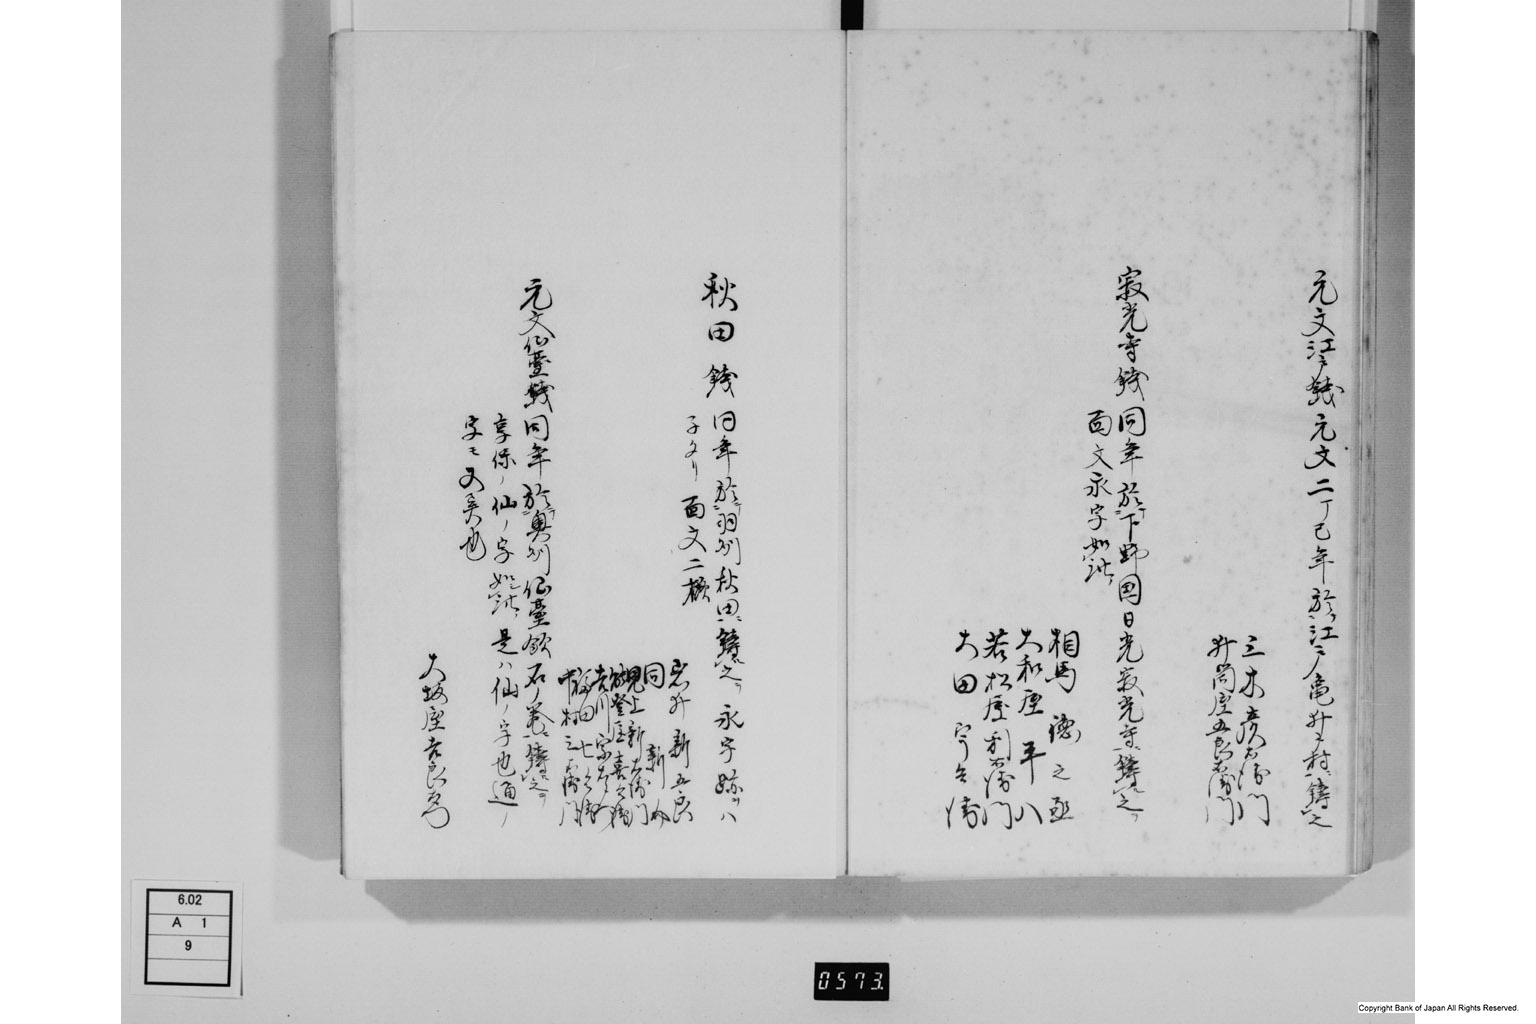 元文江戸銭元文二丁巳年於江戸亀井戸村鋳之
三木彦右衛門
井筒屋五郎右衛門
寂光寺銭同年於下野国日光寂光寺鋳之
面文永字如此
相馬徳之丞
大和屋平八
若松屋利右衛門
太田宇兵衛
秋田銭同年於羽州秋田鋳之永字
面文二
岩井新五良
同新
見上新右衛門
能登屋喜兵衛
吉川宗右衛門
稲田七兵衛
中村三右衛門
元文仙臺銭同年於奥州仙臺鋳石ノ巻鋳之
享保ノ仙ノ字如此是ハ仙ノ字也通ノ
字モ又異也
大坂屋吉良右衛門
6.02
A 1
9
0573
Copyright Bank of Japan All Rights Reserved.